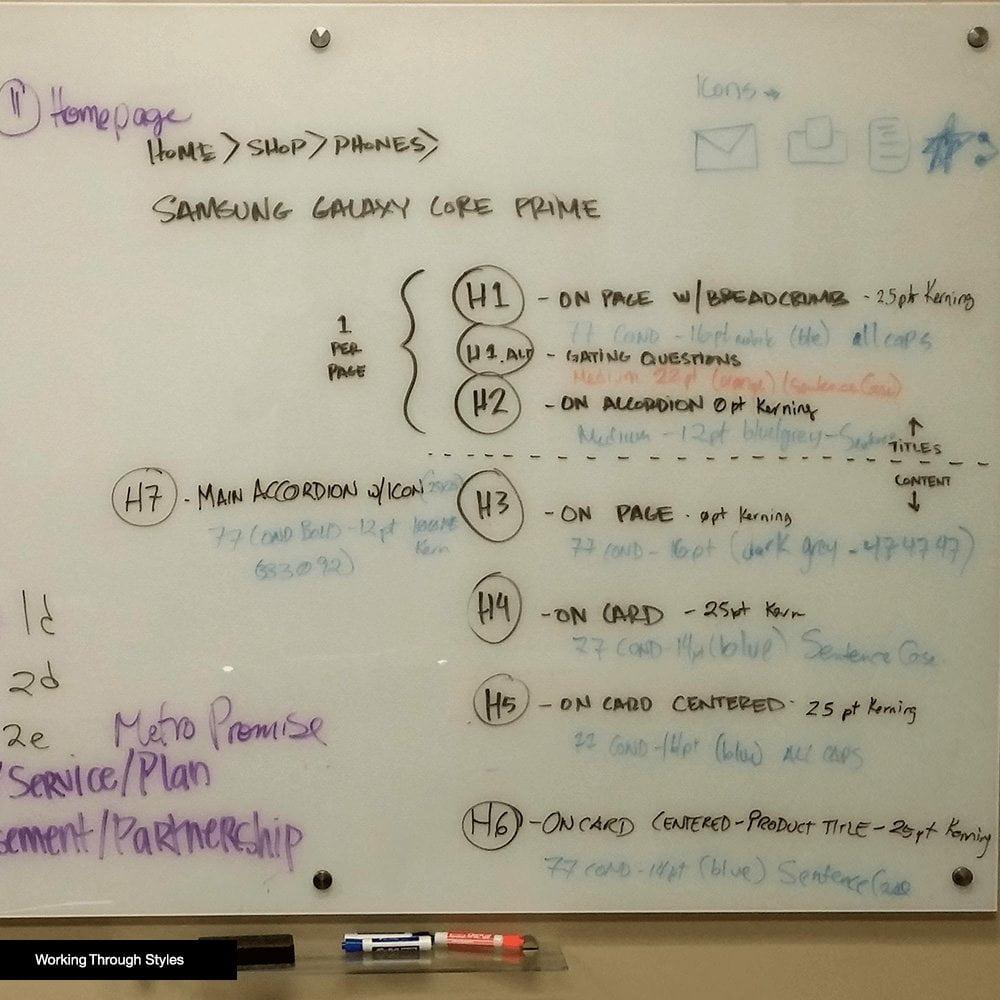 11 Homepage
Icons
HOME > SHOP > PHONES >
SAMSUNG GALAXY CORE PRIME
1
PER
PAGE
H1 - ON PAGE W/BREADCRUMB - 25pt Kerning
77 COND - 16pt (blue) all caps
H1.ALT - GATING QUESTIONS
Medium 22pt (orange)/(Sentence Case)
H2 - ON ACCORDION 0pt Kerning
Medium - 12pt blue/grey - Sentence
TITLES
CONTENT
H7 - MAIN ACCORDION W/ICON
77 COND BOLD - 12pt
Kern
(383092)
H3 - ON PAGE - 0pt Kerning
77 COND - 16pt (dark grey - 474747)
H4 - ON CARD - 25pt Kern
77 COND 14pt (blue) Sentence Case
H5 - ON CARD CENTERED - 25 pt Kerning
77 COND - 14pt (blue) ALL CAPS
H6 - ON CARD CENTERED - PRODUCT TITLE - 25pt Kerning
77 COND - 14pt (blue) Sentence Case
1d
2d
2e
Metro Promise
Service/Plan
sement/Partnership
Working Through Styles